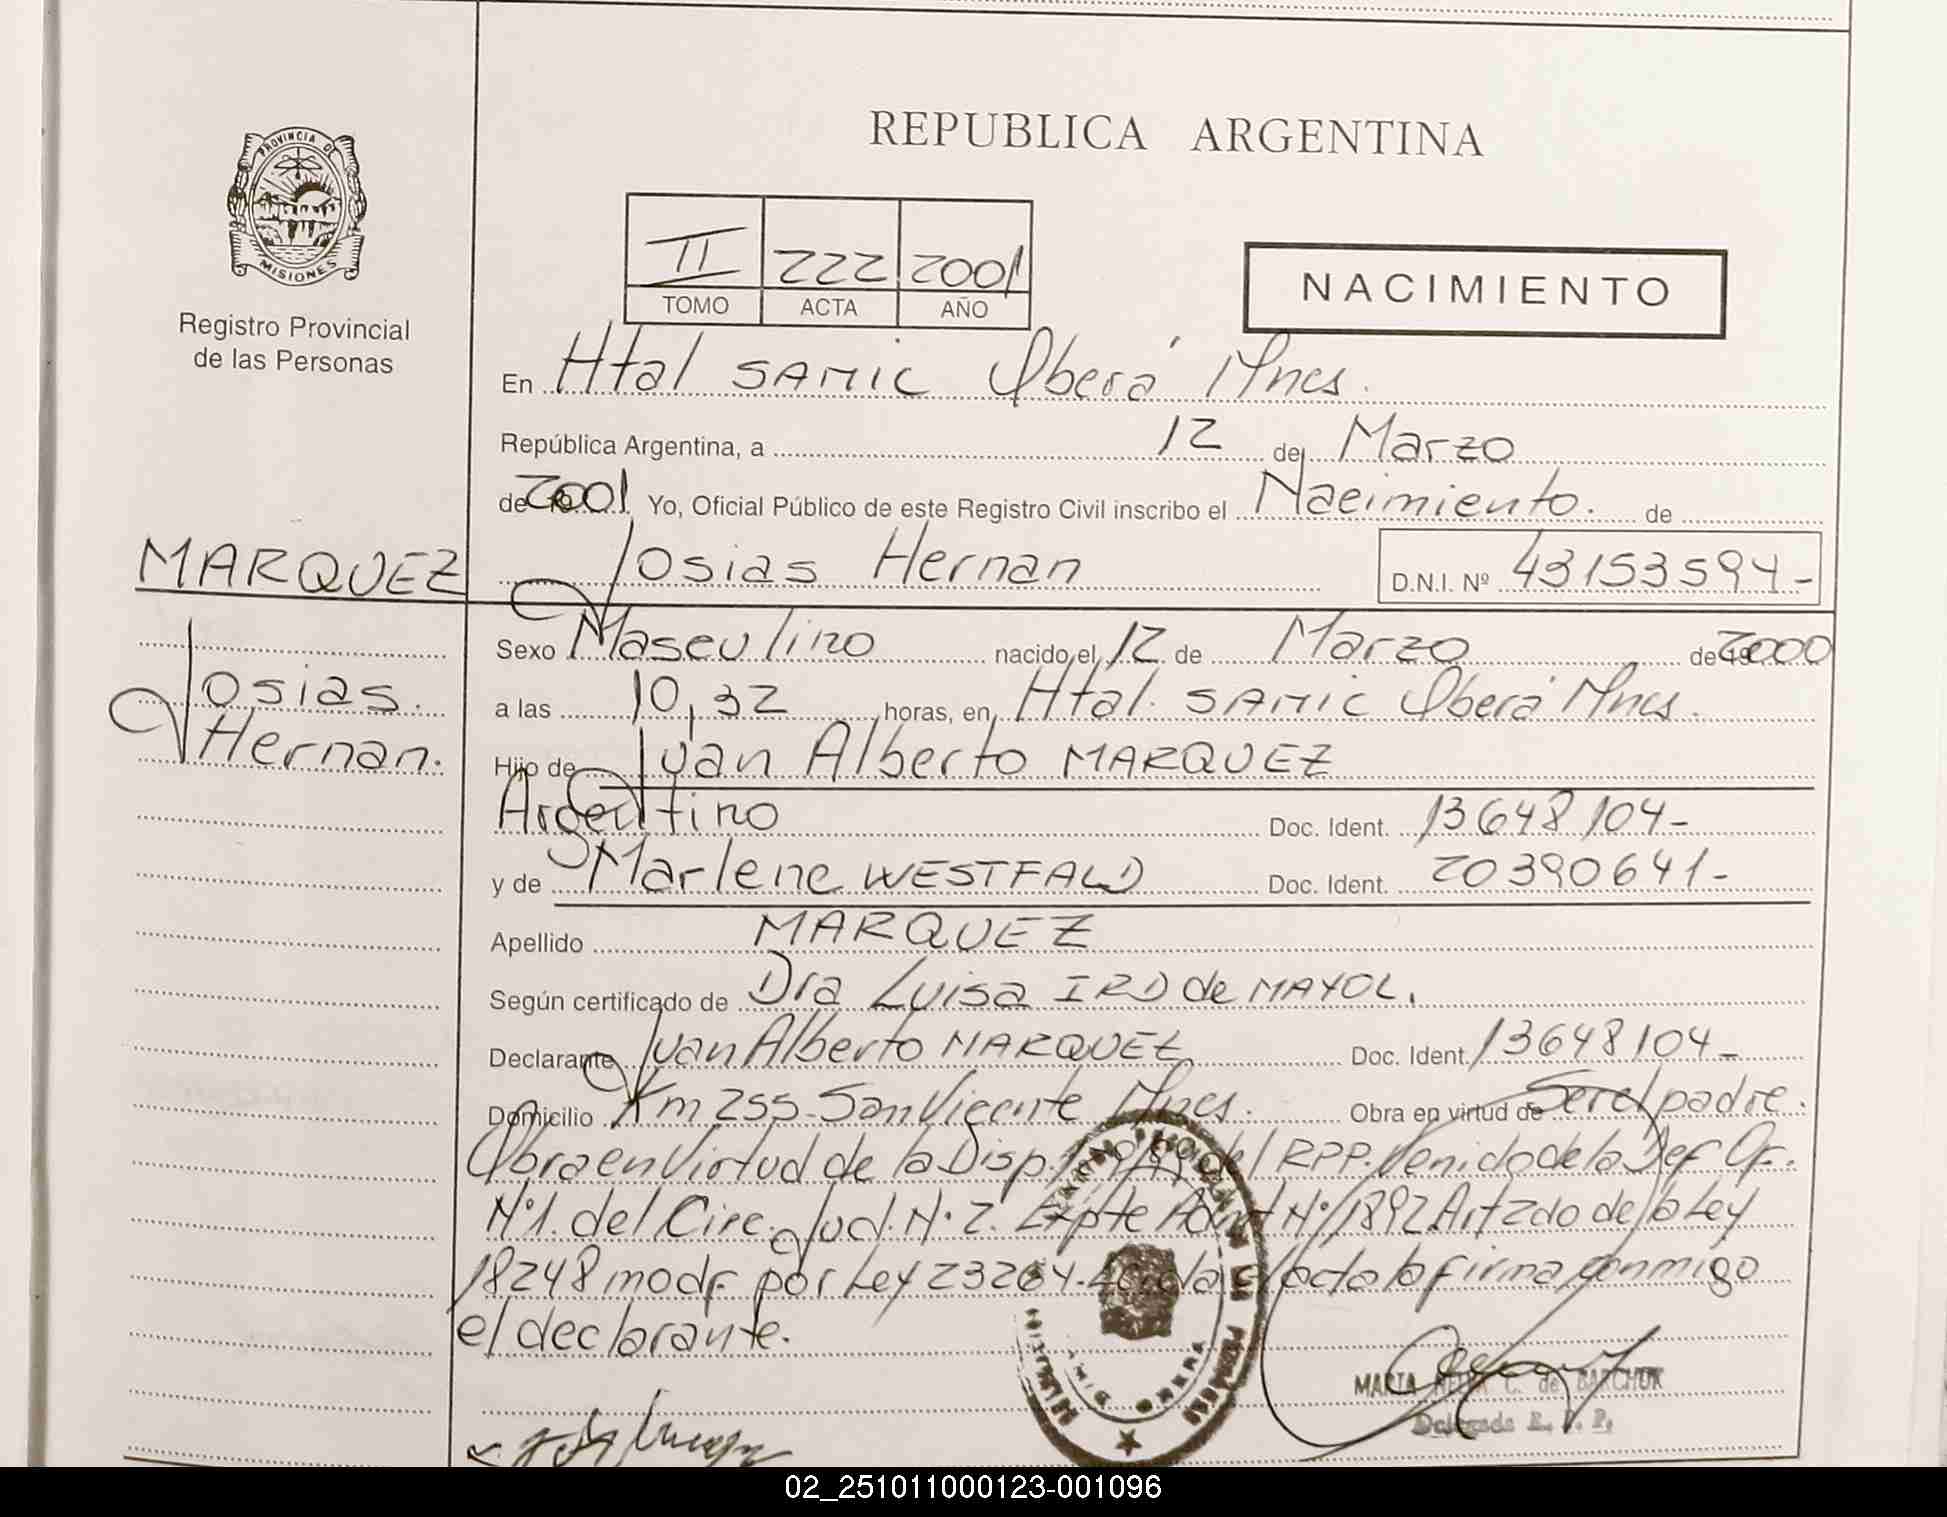 REPUBLICA ARGENTINA
PROVINCIA DE
MISIONES
Registro Provincial
de las Personas
II 222 2001
TOMO ACTA AÑO
NACIMIENTO
En Htal SAMIC Oberá Mnes.
República Argentina, a 12 de Marzo
de 2001 Yo, Oficial Público de este Registro Civil inscribo el Nacimiento. de
MARQUEZ
Josias Hernan D.N.I. Nº 43153594-
Josias
Hernan.
Sexo Masculino nacido el 12 de Marzo de 2000
a las 10,32 horas, en Htal. SAMIC Oberá Mnes.
Hijo de Juan Alberto MARQUEZ
Argentino Doc. Ident. 13648104-
y de Marlene WESTFALD Doc. Ident. 20390641-
Apellido MARQUEZ
Según certificado de Dra Luisa IRD de MAYOL.
Declarante Juan Alberto MARQUEZ Doc. Ident. 13648104-
Domicilio Km 255-San Vicente Mnes. Obra en virtud de Ser el padre.
Obra en Virtud de la Disp. del RPP. Venido de la Def Of.
Nº1. del Circ. Jud. Nº 2. Expte Nº 1892 Art 2do de la Ley
18248 modf por Ley 23264. acta la firma conmigo
el declarante.
MARIA C. de BARCHUK
Delegada R. P. P.
02_251011000123-001096